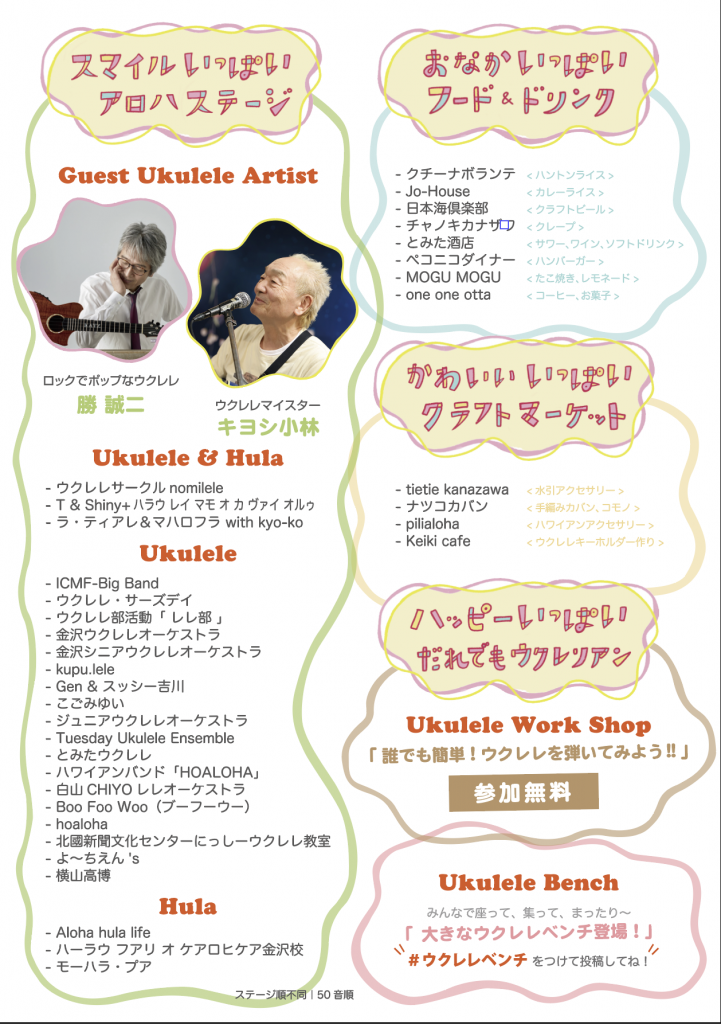 スマイルいっぱい
アロハステージ
Guest Ukulele Artist
ロックでポップなウクレレ
勝 誠二
ウクレレマイスター
キヨシ小林
Ukulele & Hula
- ウクレレサークル nomilele
- T & Shiny+ ハラウ レイ マモ オ カ ヴァイ オルゥ
- ラ・ティアレ＆マハロフラ with kyo-ko
Ukulele
- ICMF-Big Band
- ウクレレ・サーズデイ
- ウクレレ部活動「 レレ部 」
- 金沢ウクレレオーケストラ
- 金沢シニアウクレレオーケストラ
- kupu.lele
- Gen & スッシー吉川
- こごみゆい
- ジュニアウクレレオーケストラ
- Tuesday Ukulele Ensemble
- とみたウクレレ
- ハワイアンバンド「HOALOHA」
- 白山 CHIYO レレオーケストラ
- Boo Foo Woo（ブーフーウー）
- hoaloha
- 北國新聞文化センターにっしーウクレレ教室
- よ～ちえん 's
- 横山高博
Hula
- Aloha hula life
- ハーラウ フアリ オ ケアロヒケア金沢校
- モーハラ・プア
ステージ順不同｜50 音順
おなかいっぱい
フード & ドリンク
- クチーナボランテ ＜ハントンライス＞
- Jo-House ＜カレーライス＞
- 日本海倶楽部 ＜クラフトビール＞
- チャノキカナザワ ＜クレープ＞
- とみた酒店 ＜サワー、ワイン、ソフトドリンク＞
- ペコニコダイナー ＜ハンバーガー＞
- MOGU MOGU ＜たこ焼き、レモネード＞
- one one otta ＜コーヒー、お菓子＞
かわいい いっぱい
クラフトマーケット
- tietie kanazawa ＜水引アクセサリー＞
- ナツコカバン ＜手編みカバン、コモノ＞
- pilialoha ＜ハワイアンアクセサリー＞
- Keiki cafe ＜ウクレレキーホルダー作り＞
ハッピーいっぱい
だれでもウクレリアン
Ukulele Work Shop
「 誰でも簡単！ウクレレを弾いてみよう!! 」
参加無料
Ukulele Bench
みんなで座って、集って、まったり～
「 大きなウクレレベンチ登場！」
＃ウクレレベンチ をつけて投稿してね！